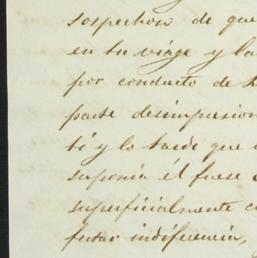 sospechoso de que
en tu viage y la
por conducto de
parte desimpresion
tí y lo tarde que
suponia él fuese
superficialmente
fectar indiferencia,